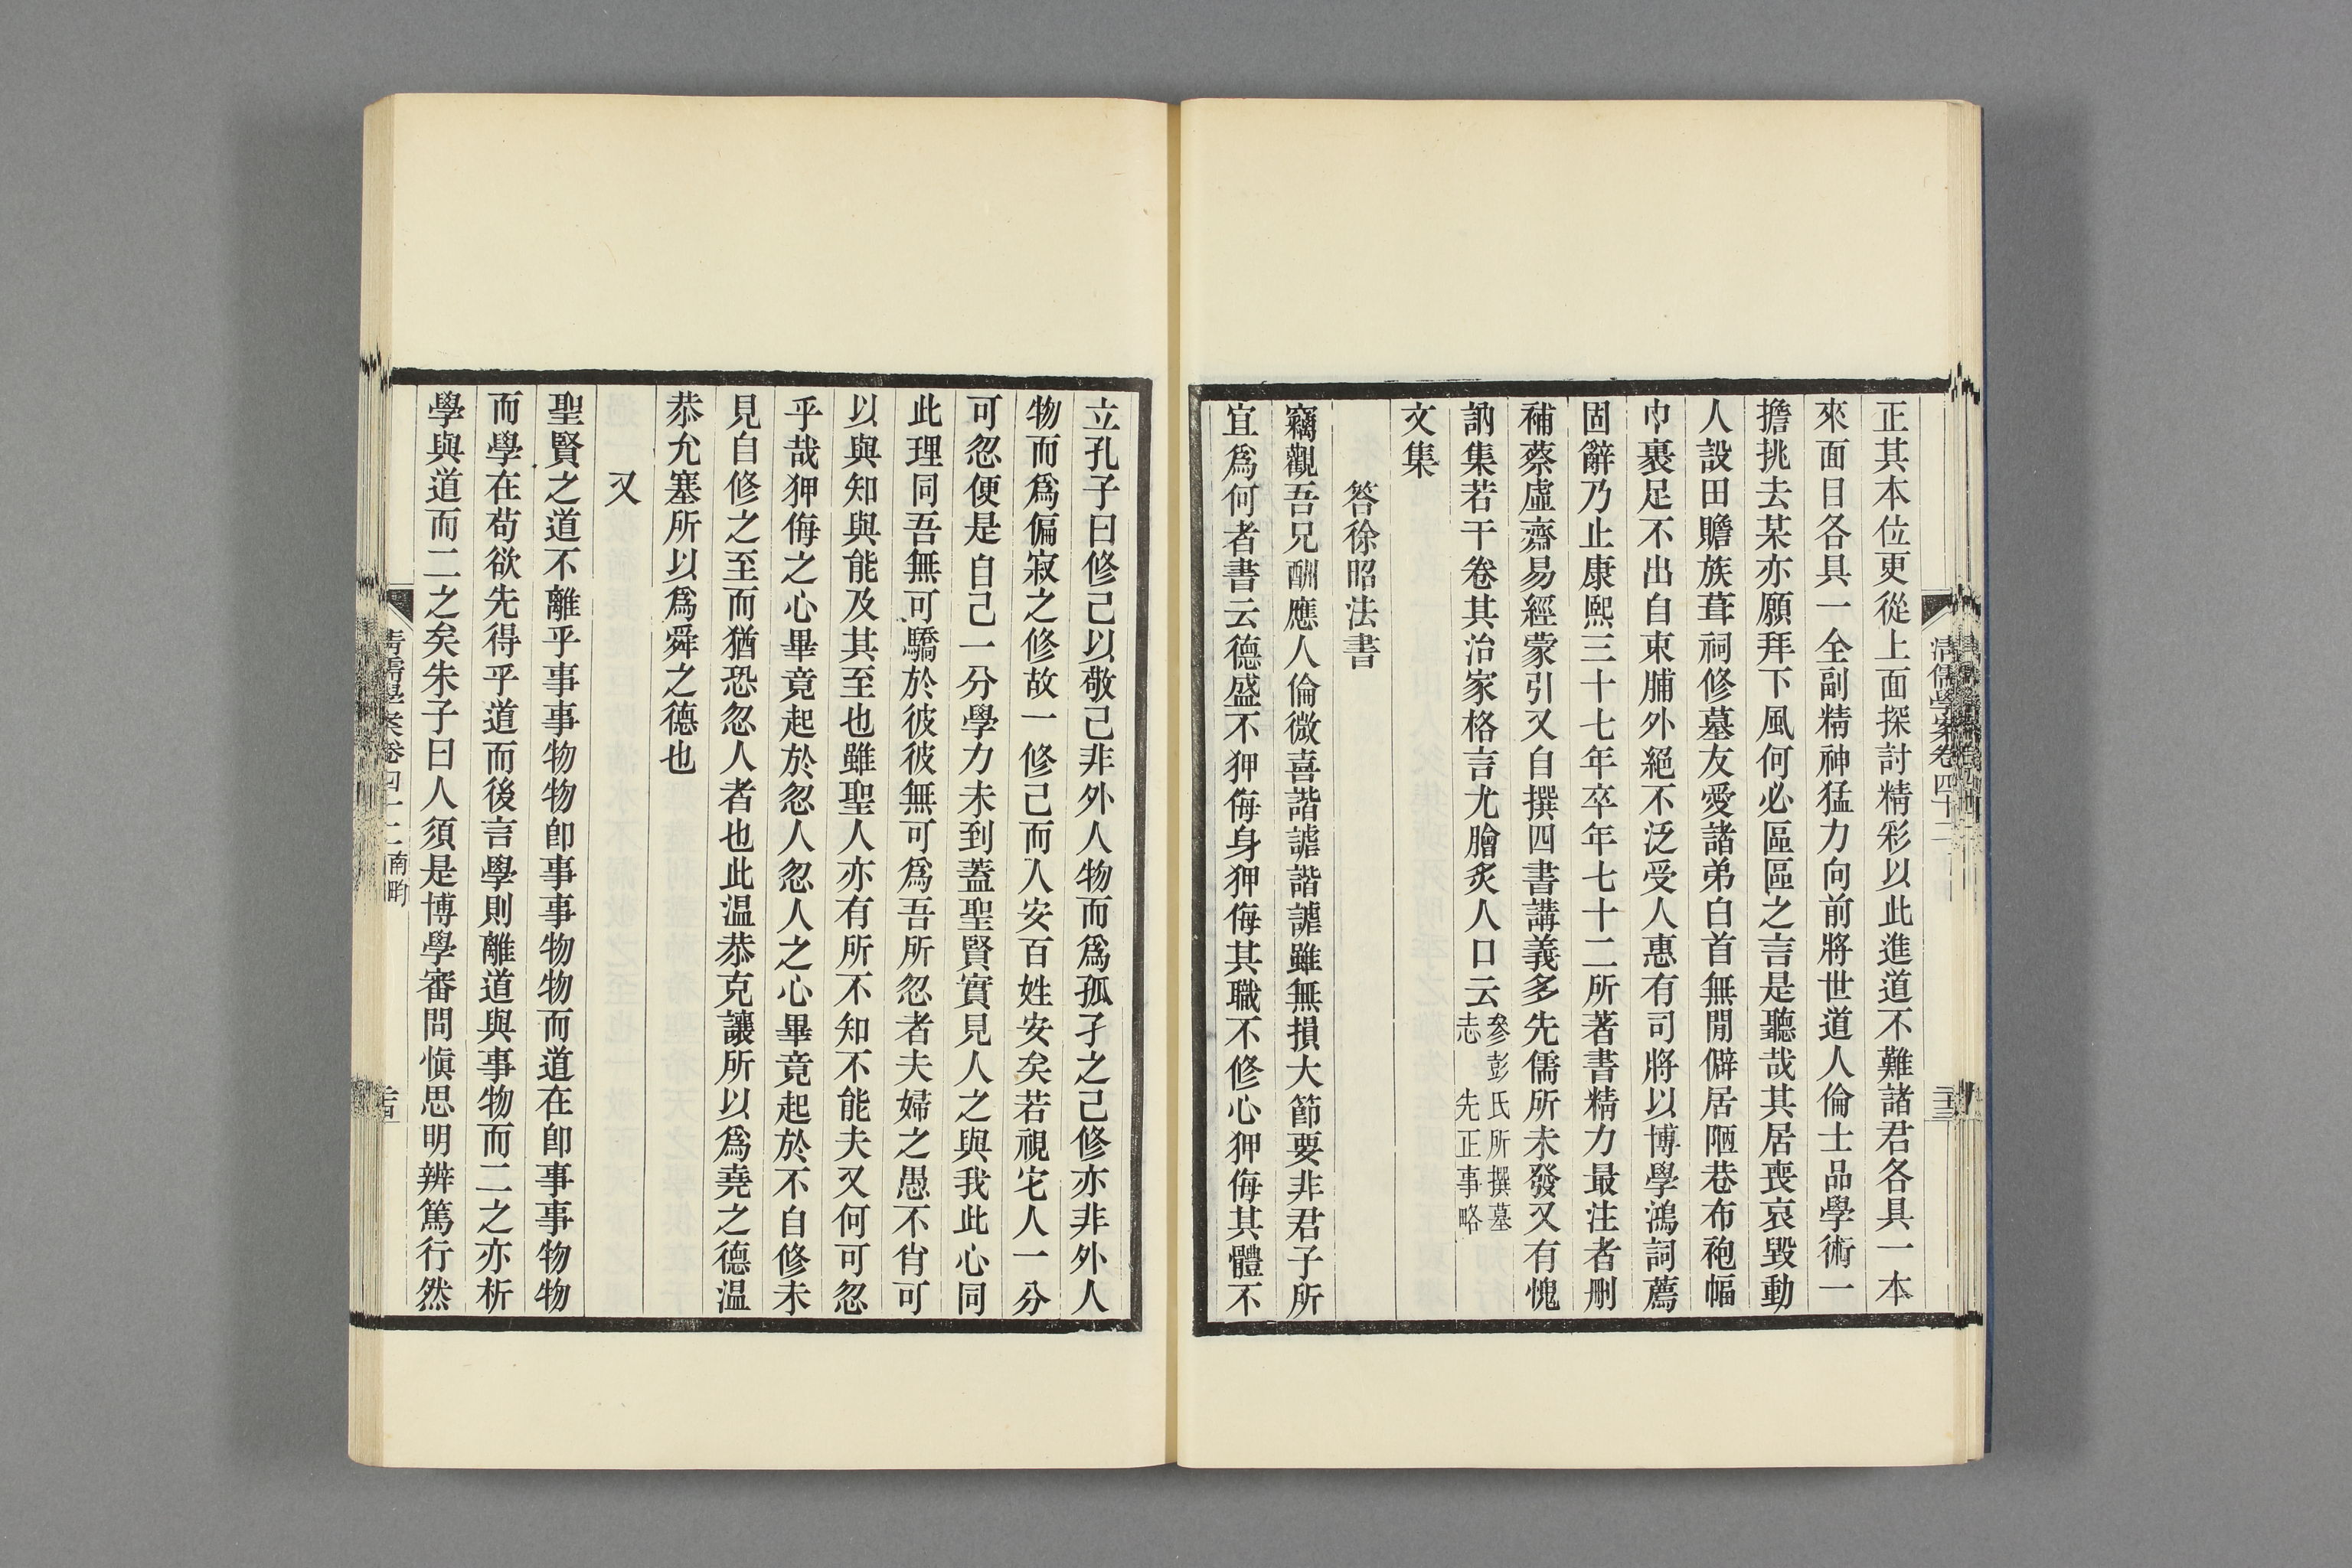 清儒學案卷四十二
二十三
正其本位更從上面探討精彩以此進道不難諸君各具一本
來面目各具一全副精神猛力向前將世道人倫士品學術一
擔挑去某亦願拜下風何必區區之言是聽哉其居喪哀毀動
人設田贍族葺祠修墓友愛諸弟白首無閒僻居陋巷布袍幅
巾裹足不出自束脯外絕不泛受人惠有司將以博學鴻詞薦
固辭乃止康熙三十七年卒年七十二所著書精力最注者刪
補蔡虛齋易經蒙引又自撰四書講義多先儒所未發又有愧
訥集若干卷其治家格言尤膾炙人口云參彭氏所撰墓志 先正事略
文集
答徐昭法書
竊觀吾兄酬應人倫微喜諧謔諧謔雖無損大節要非君子所
宜爲何者書云德盛不狎侮身狎侮其職不修心狎侮其體不
立孔子曰修己以敬己非外人物而爲孤孑之己修亦非外人
物而爲偏寂之修故一修己而人安百姓安矣若視宅人一分
可忽便是自己一分學力未到蓋聖賢實見人之與我此心同
此理同吾無可驕於彼彼無可爲吾所忽者夫婦之愚不肖可
以與知與能及其至也雖聖人亦有所不知不能夫又何可忽
乎哉狎侮之心畢竟起於忽人忽人之心畢竟起於不自修未
見自修之至而猶恐忽人者也此温恭克讓所以爲堯之德温
恭允塞所以爲舜之德也
又
聖賢之道不離乎事事物物卽事事物物而道在卽事事物物
而學在苟欲先得乎道而後言學則離道與事物而二之亦析
學與道而二之矣朱子曰人須是博學審問慎思明辨篤行然
清儒學案卷四十二 南畇
二十四